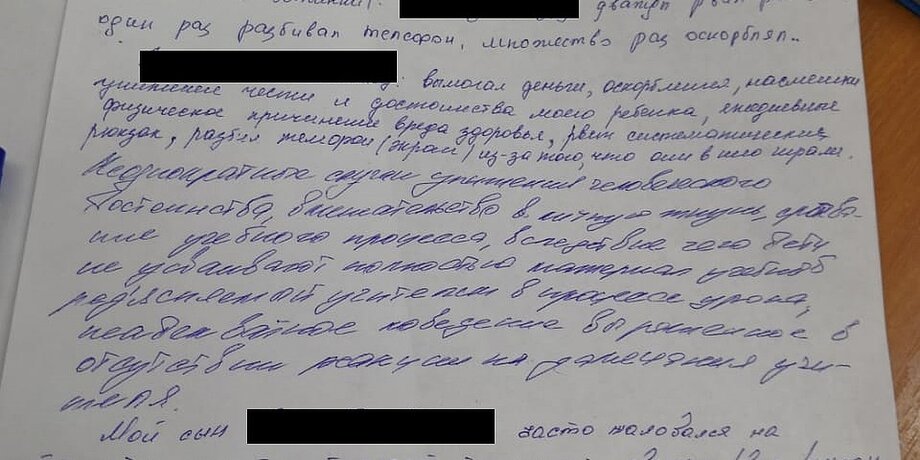 дважды рвал
один раз разбивал телефон, множество раз оскорблял..
вымогал деньги, оскорбления, насмешки
унижение чести и достоинства моего ребенка, ежедневные
физическое причинение вреда здоровья, рвет систематически
рюкзак, разбил телефон (экран) из-за того, что они в него играли.
Неоднократные случаи унижения человеческого
достоинства, вмешательство в личную жизнь, срыва-
ние учебного процесса, вследствие чего дети
не усваивают полностью материал учебный
разъясняемый учителем в процессе урока,
неадекватное поведение выраженное в
отсутствии реакции на замечания учи-
теля.
Мой сын часто жаловался на